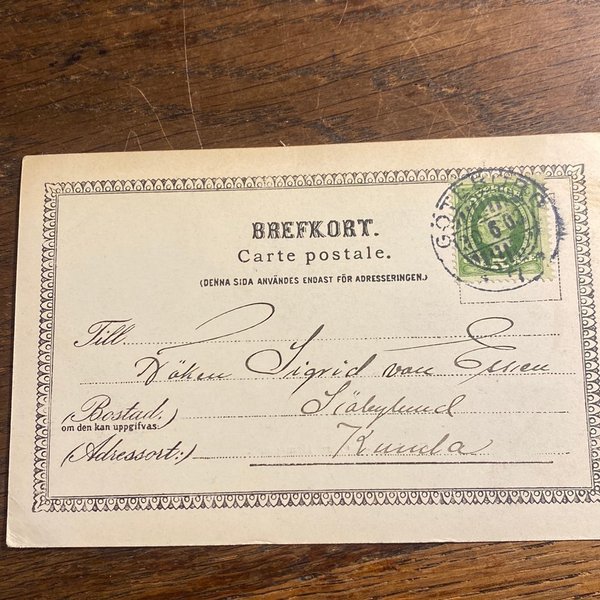 BREFKORT.
GÖTEBORG
Carte postale.
(DENNA SIDA ANVÄNDES ENDAST FÖR ADRESSERINGEN.)
Till
Fröken Sigrid von Essen
(Bostad:
om den kan uppgifvas:)
(Adressort:)
Kumla